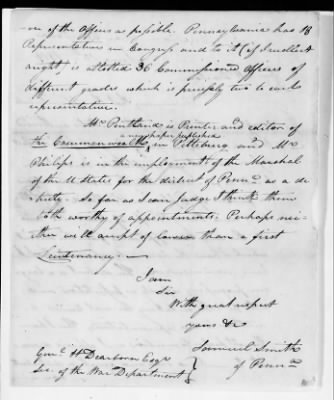 one of the Officers as possible. Pennsylvania has 18
Representatives in Congress and to it (if I recollect
right) is allotted 36 Commissioned Officers of
different grades which is precisely two to each
representative.
Mr Pentland is Printer and editor of
a newspaper published
the Commonwealth in Pittsburg, and Mr
Philips is in the employment of the Marshal
of the U States for the district of Pennª as a de-
puty. So far as I can judge I think them
both worthy of appointments. Perhaps nei-
ther will accept of lower than a first
Lieutenancy.
I am
Sir
With great respect
yours &c
Samuel Smith
of Pennª
Genl. H Dearborn Esqr
Sec. of the War Department